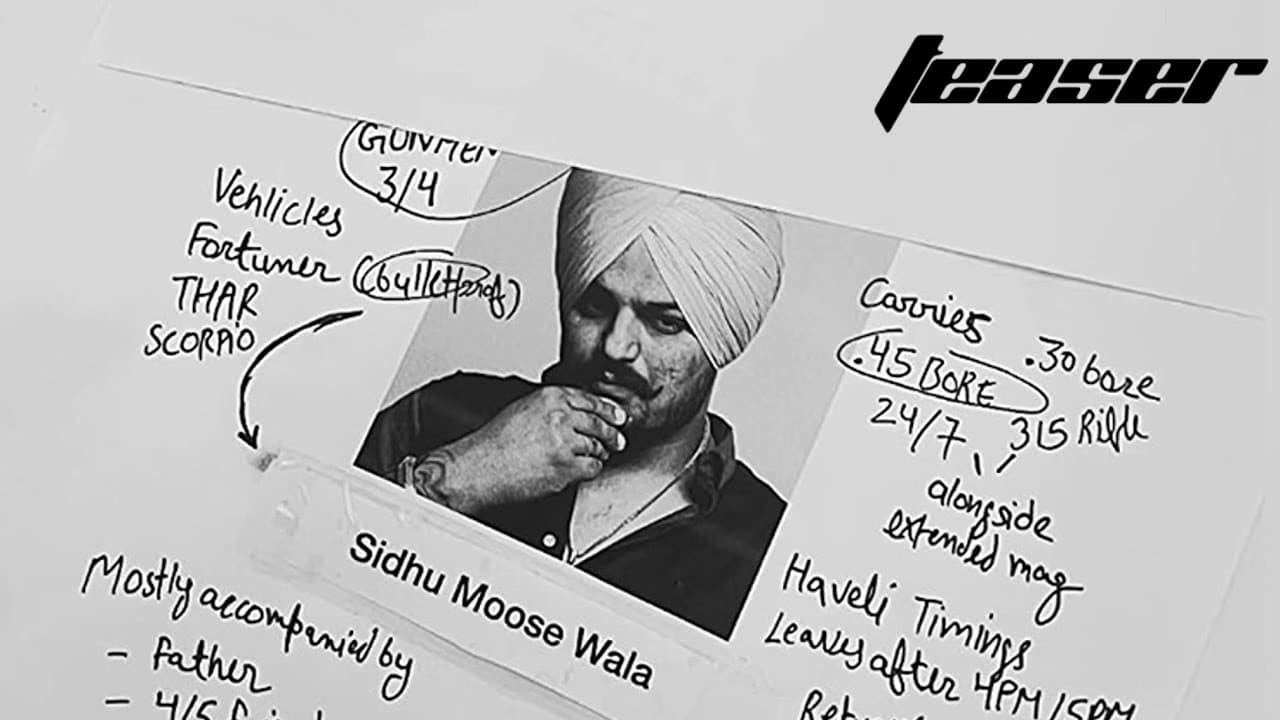 teaser
GUNMEN
3/4
Vehlicles
Fortuner (bulletproof)
THAR
SCORPIO
Carries .30 bore
.45 BORE
24/7 315 Rifle
alongside
extended mag
Sidhu Moose Wala
Mostly accompanied by
- father
- 4/5
Haveli Timings
Leaves after 4PM/5PM